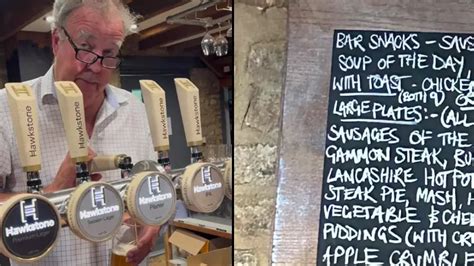 Hawkstone
Hawkstone
Hawkstone
Hawkstone
Hawkstone
Hawkstone
Hawkstone
BAR SNACKS - SAVE
SOUP OF THE DAY
WITH TOAST - CHICKE
(BOTH 9)
LARGE PLATES:- (ALL
SAUSAGES OF THE
GAMMON STEAK, BU
LANCASHIRE HOTPOT
STEAK PIE, MASH, H
VEGETABLE & CHE
PUDDINGS
(WITH CR
APPLE CRUMBLE